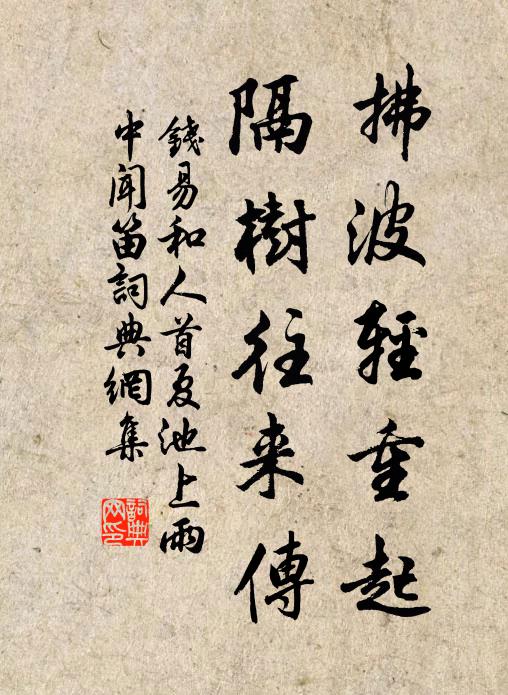 拂波輕重起
隔樹往来傳
錢易和人首夏池上雨
中闻笛詞典網集
詞典
网印